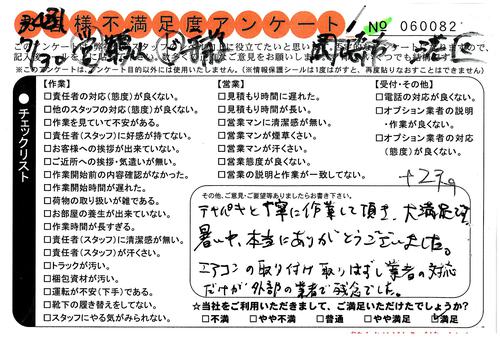 お客様不満足度アンケート
No 060082
このアンケートは弊社
※このアンケートは、アンケート目的以外には使用いたしません。(※情報保護シールは1度はがすと、再度貼りなおすことはできません)
チェックリスト
【作業】
□責任者の対応(態度)が良くない。
□他のスタッフの対応(態度)が良くない。
□作業を見ていて不安がある。
□責任者(スタッフ)に好感が持てない。
□お客様への挨拶が出来ていない。
□ご近所への挨拶・気遣いが無い。
□作業開始前の内容確認がなかった。
□作業開始時間が遅れた。
□荷物の取り扱いが雑である。
□お部屋の養生が出来ていない。
□作業時間が長すぎる。
□責任者(スタッフ)に清潔感が無い。
□責任者(スタッフ)が汗くさい。
□トラックが汚い。
□梱包資材が汚い。
□運転が不安(下手)である。
□靴下の履き替えをしてない。
□スタッフにやる気がみられない。
【営業】
□見積もり時間に遅れた。
□見積もり時間が長い。
□営業マンに清潔感が無い。
□営業マンが煙草くさい。
□営業マンが汗くさい。
□営業態度が良くない。
□営業の説明と作業が一致してない。
【受付・その他】
□電話の対応が良くない。
□オプション業者の説明
・作業が良くない。
□オプション業者の対応
(態度)が良くない。
その他、ご意見・ご要望等ありましたらお書き下さい。
テキパキと丁寧に作業して頂き、大満足です。
暑い中、本当にありがとうございました。
エアコンの取り付け取りはずし業者の対応
だけが外部の業者で残念でした。
☆当社をご利用いただきまして、ご満足いただけたでしょうか?
□不満 □やや不満 □普通 □やや満足 ☑満足